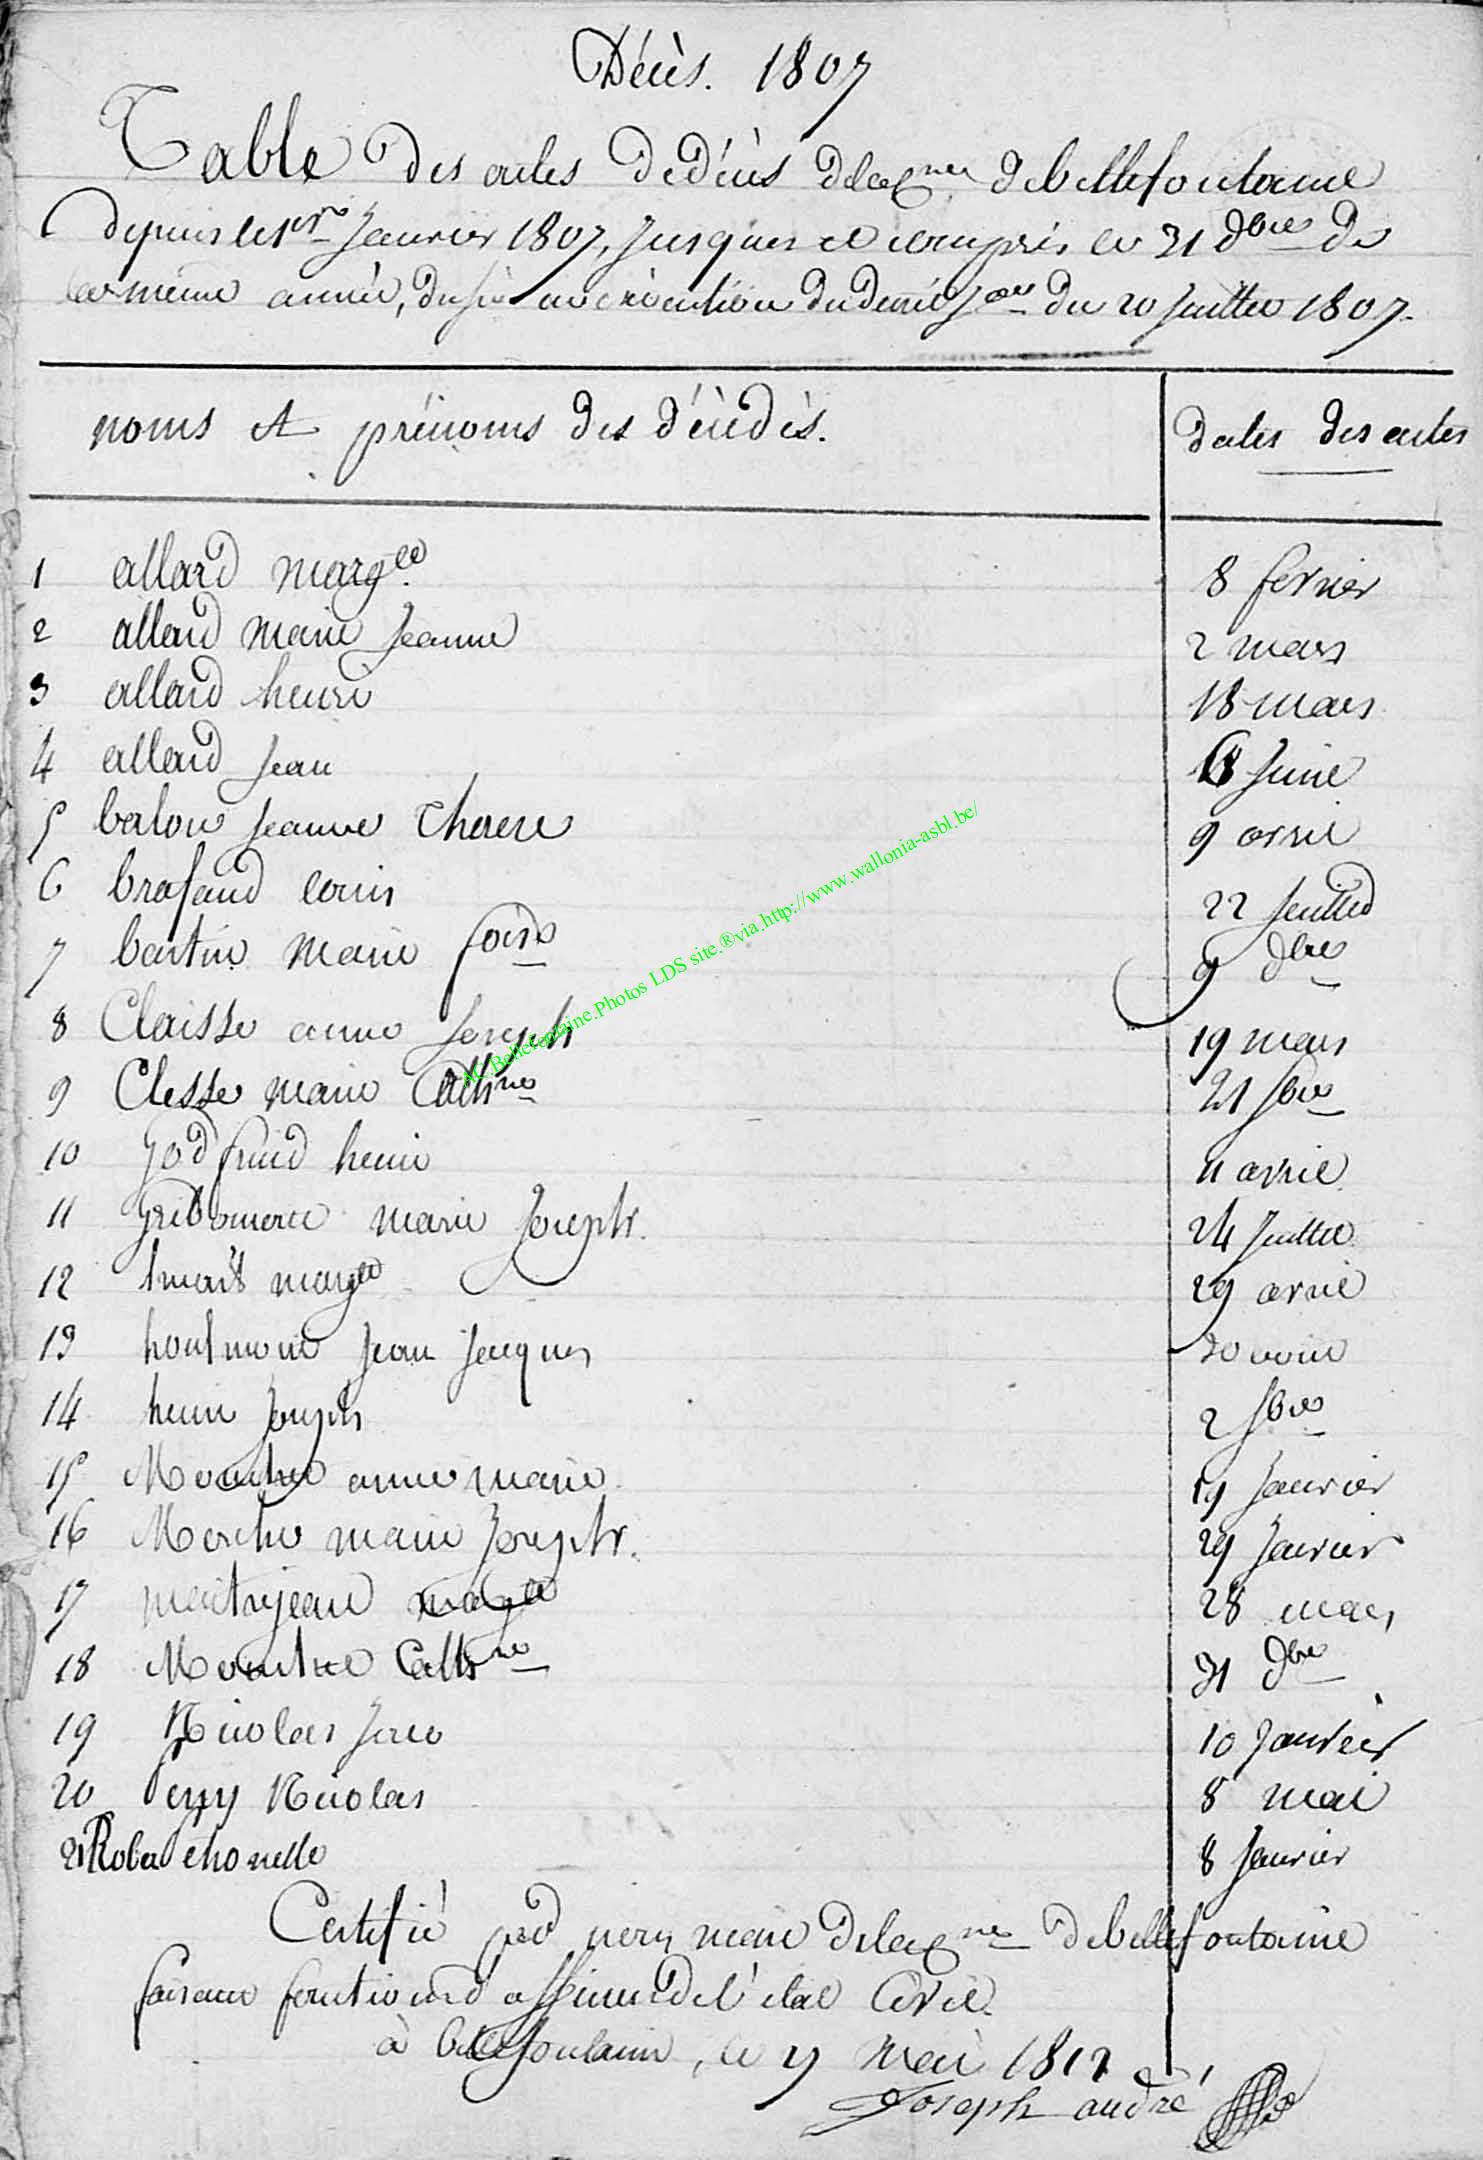 Décès. 1807
Table des actes de décès dela Cne de bellefontaine
depuis le 1er Janvier 1807, jusques et compris le 31 Xbre de
la même année, du décret du 20 Juillet 1807.
noms et prénoms des décédés.
dates des actes
1 allard margte 8 fevrier
2 allard marie Jeanne 2 mars
3 allard henri 18 mars
4 allard Jean 18 Juin
5 balon Jeanne therese 9 avril
6 louis 22 Juillet
7 bastin marie foise 9 dbre
8 Claisse anne Joseph 19 mars
9 Clesse marie Cathne 21
10 godfrind henri 11 avril
11 marie Joseph 24 Juillet
12 margte 29 avril
13 Jean Jacques
14 henri Joseph 2
15 anne marie 19 Janvier
16 marie Joseph 29 Janvier
17 maitrejean margte 28 mars
18 Cathne 31 dbre
19 Nicolas 10 Janvier
20 Nicolas 8 mai
21 8 Janvier
Certifié par nous maire dela Cne de bellefontaine
faisant fonction d'officier de l'état Civil.
à bellefontaine, le mai 1812
Joseph andré
AC.Bellefontaine.Photos LDS site.®via.http://www.wallonia-asbl.be/